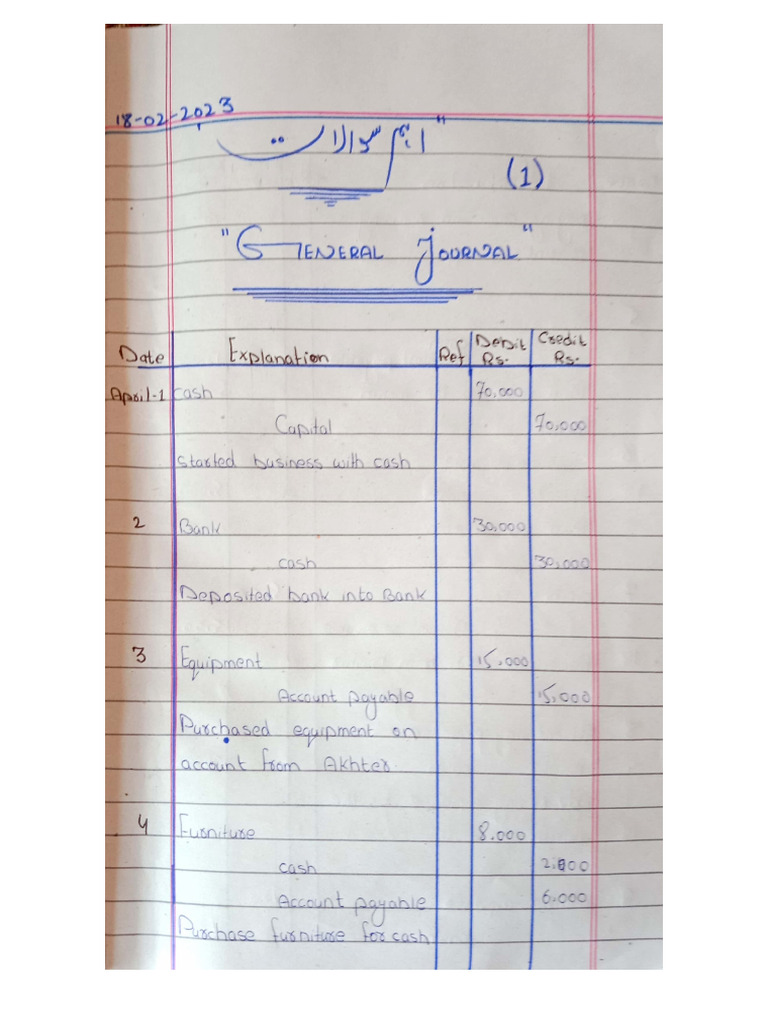 18-02-2023
"اہم سوالات
(1)
"GENERAL JOURNAL"
Date Explanation Ref Debit Rs. Credit Rs.
April-1 cash 70,000
Capital 70,000
Started business with cash
2 Bank 30,000
cash 30,000
Deposited bank into Bank
3 Equipment 15,000
Account payable 15,000
Purchased equipment on
account from Akhter.
4 Furniture 8,000
cash 2,000
Account payable 6,000
Purchase furniture for cash